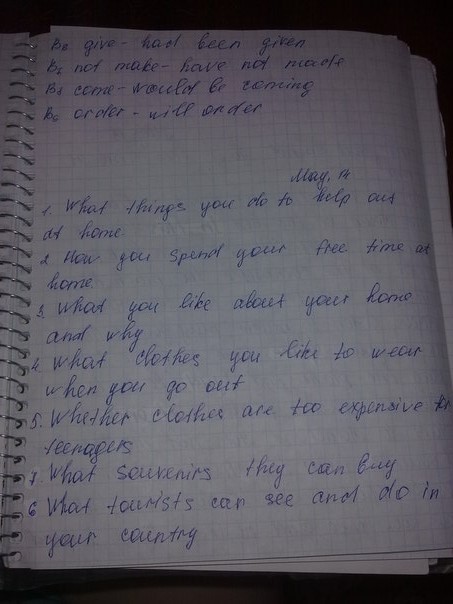 B8 give - had been given
B5 not make - have not made
B8 come - would be coming
B6 order - will order
May, 14
1. What things you do to help out
at home.
2 How you spend your free time at
home.
3. What you like about your home
and why
4. What clothes you like to wear
when you go out
5. Whether clothes are too expensive for
teenagers
7. What souvenirs they can buy
6 What tourists can see and do in
your country